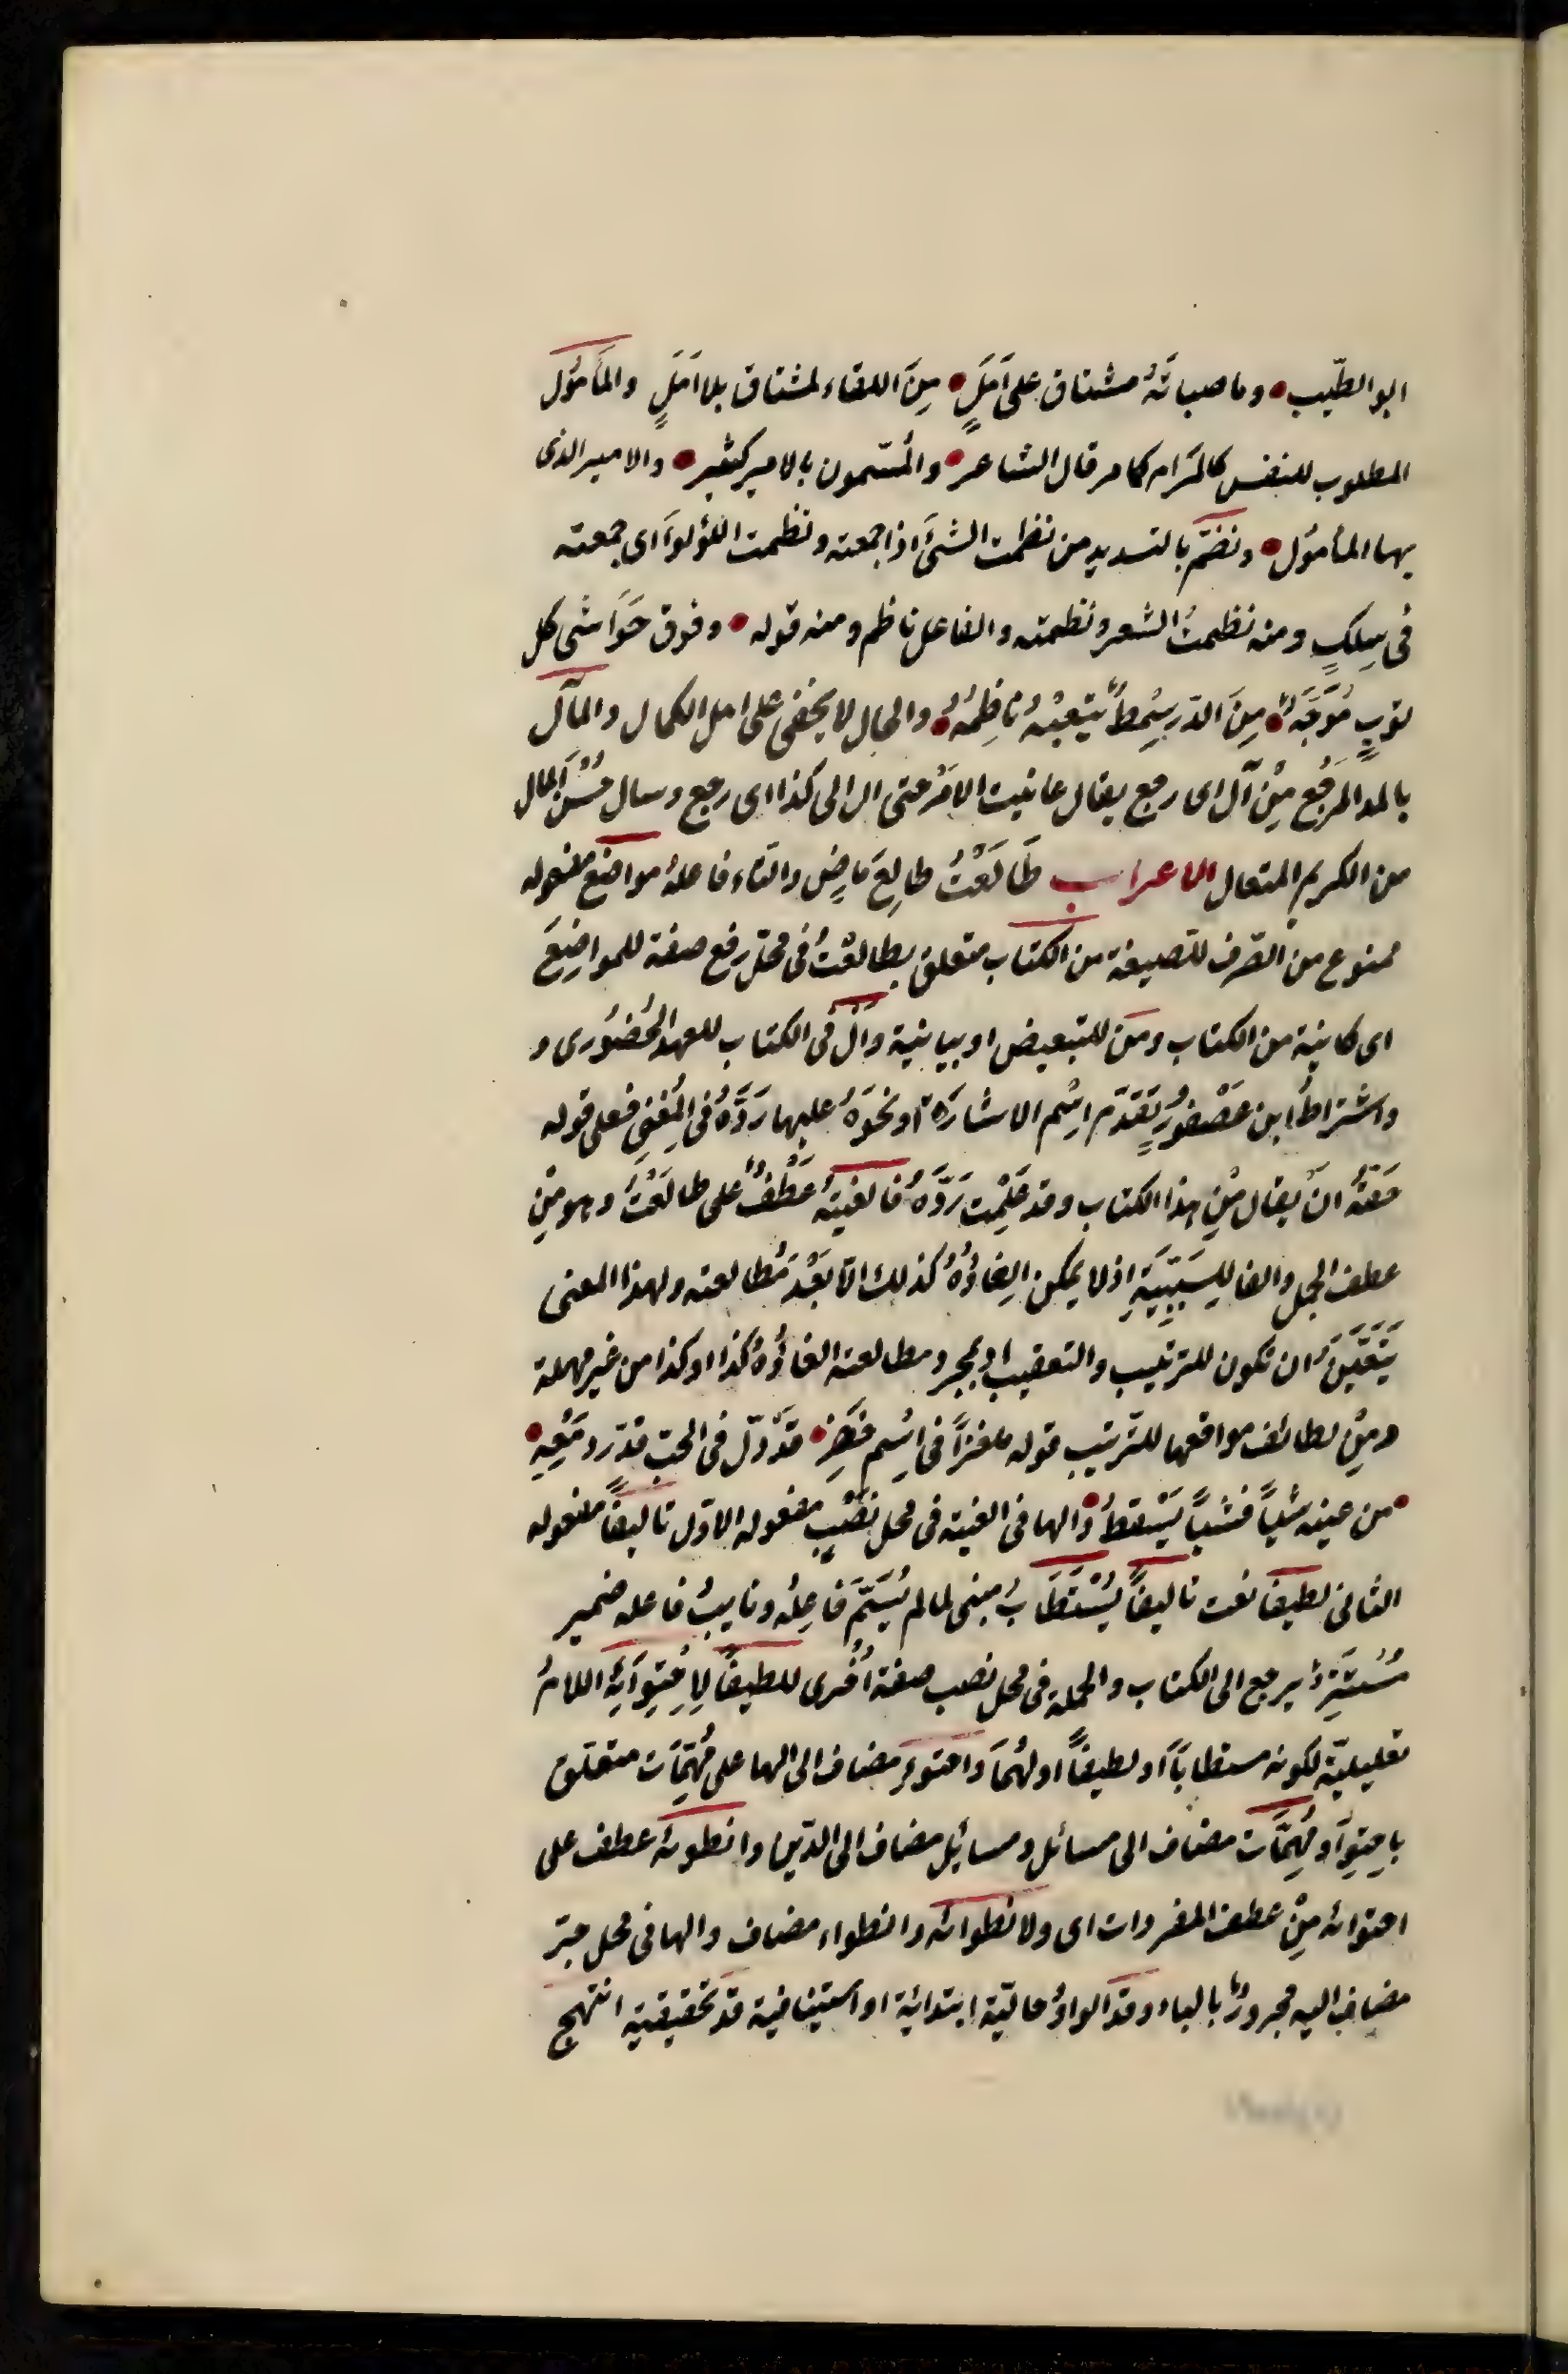 ابو الطيّب • وما صبابَةُ مشتاق على اَمَلٍ • مِنَ اللقاء لمشتاق بلا اَمَلٍ والمَأمُول
المطلوب للنفس كالمَرَام كما مر قال الشاعر • والمُتَسمون بالامير كثير • والامير الذى
بها المأمول • ونضّم بالتسديد من نظمت الشئَ اذا جمعته ونظمت اللؤلوأ اى جمعته
فى سِلكٍ ومنه نظمتُ الشعر ونظمته والفاعل ناظم ومنه قوله • وفوق حَوَاشى كل
ثوبٍ مُوَجَّهٌ • مِنَ الدّر سِمطٌ يثقبْهُ ناظِمُهُ • والحال لا يخفى على اهل الكمال والمآل
بالمد المَرجُع مِنْ آل اى رجع يقال عانيت الامْر حتى ال الى كذا اى رجع وسال حُسْنَ المال
من الكريم المتعال الاعراب طَالَعْتُ طالِعَ ماضٍ والتاء فاعلهُ مواضع مفعوله
ممنوع من الصّرف للصيغة من الكتاب متعلق بطالعْتُ فى محل رفع صفة للمواضِعَ
اى كاينة من الكتاب ومن للتبعيض او بيانية وَاَلْ فى الكتاب للعهد الحُضُورى و
واشتراطُ ابن عصْفورٍ تَقَدّم اسْم الاشارَة او نحْوَهُ عليها رَدَّهُ فى المُغنى فعلى قوله
حَقّهُ انْ يقال مْنِ هذا الكتاب وقد عَلِمْت رَدَّهُ فالفيتهُ عَطْفٌ على طالَعْتُ وهو مِنْ
عطف الجمل والفا للِسَبَبِيَةِ اذ لا يمكن اِلفاؤُهُ كذلك الّا بَعْدَ مُطالعته ولهذا المعنى
يَتَعَيّنُ ان تكون للترتيب والتعقيب اذ بمجرد مطالعته الفاؤُهُ كذا او كذا من غير مهملة
ومِنْ لطائف مواقعها للترتيب قوله ملغزاً فى اِسْم خضِرْ • قدْ دَلّ فى الحبّ قدْر دمْعِهِ •
• من عينه شياً فشياً يَسْقطُ • والها فى الفيته فى محل نصْبٍ مفعوله الاوّل تاليفاً مفعوله
الثانى لطيفا نعت تاليفاً يُسْتَطَابُ مبنى لما لم يُسَمَّ فَاعِلُه ونايبُ فاعله ضمير
مُسْتَتِرٌ يرجع الى الكتاب والجملة فى محل نصب صفة اُخْرى للطيفاً لِاحْتِوَائِه اللامُ
تعليليّة لكونه مستطاباً او لطيفاً او لهُمَا واحتواء مضاف الى الها على مُهِمّات متعلق
باحتِوا ومُهِمَّات مضاف الى مسائل ومسائِل مضاف الى الدّين وانطوئه عطف على
احتوائه مِنْ عطف المفردات اى ولانطوائه وانطواء مضاف والها فى محل جرّ
مضاف اليه مجرورٌ بالياء وقد الواوُ حاليّة ابتدائية او استينافية قد تحقيقية انتهج